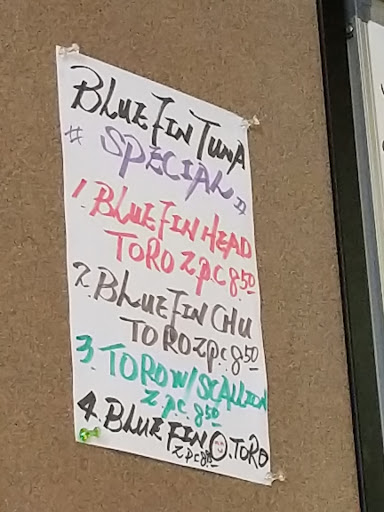 BLUE FIN TUNA
# SPECIAL #
1. BLUE FIN HEAD
TORO 2 PC 8.50
2. BLUE FIN CHU
TORO 2 PC 8.50
3. TORO W/SCALLION
2 PC. 8.50
4. BLUE FIN O. TORO
2 PC 8.50